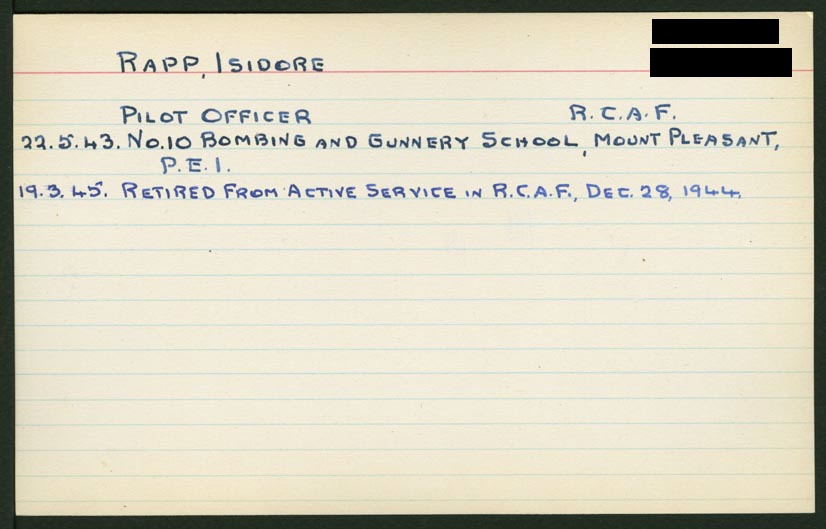 RAPP, ISIDORE
PILOT OFFICER R.C.A.F.
22.5.43. No.10 BOMBING AND GUNNERY SCHOOL, MOUNT PLEASANT,
P.E.I.
19.3.45. RETIRED FROM ACTIVE SERVICE IN R.C.A.F., DEC. 28, 1944.